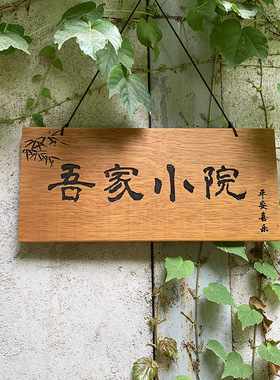 吾家小院
平安喜乐